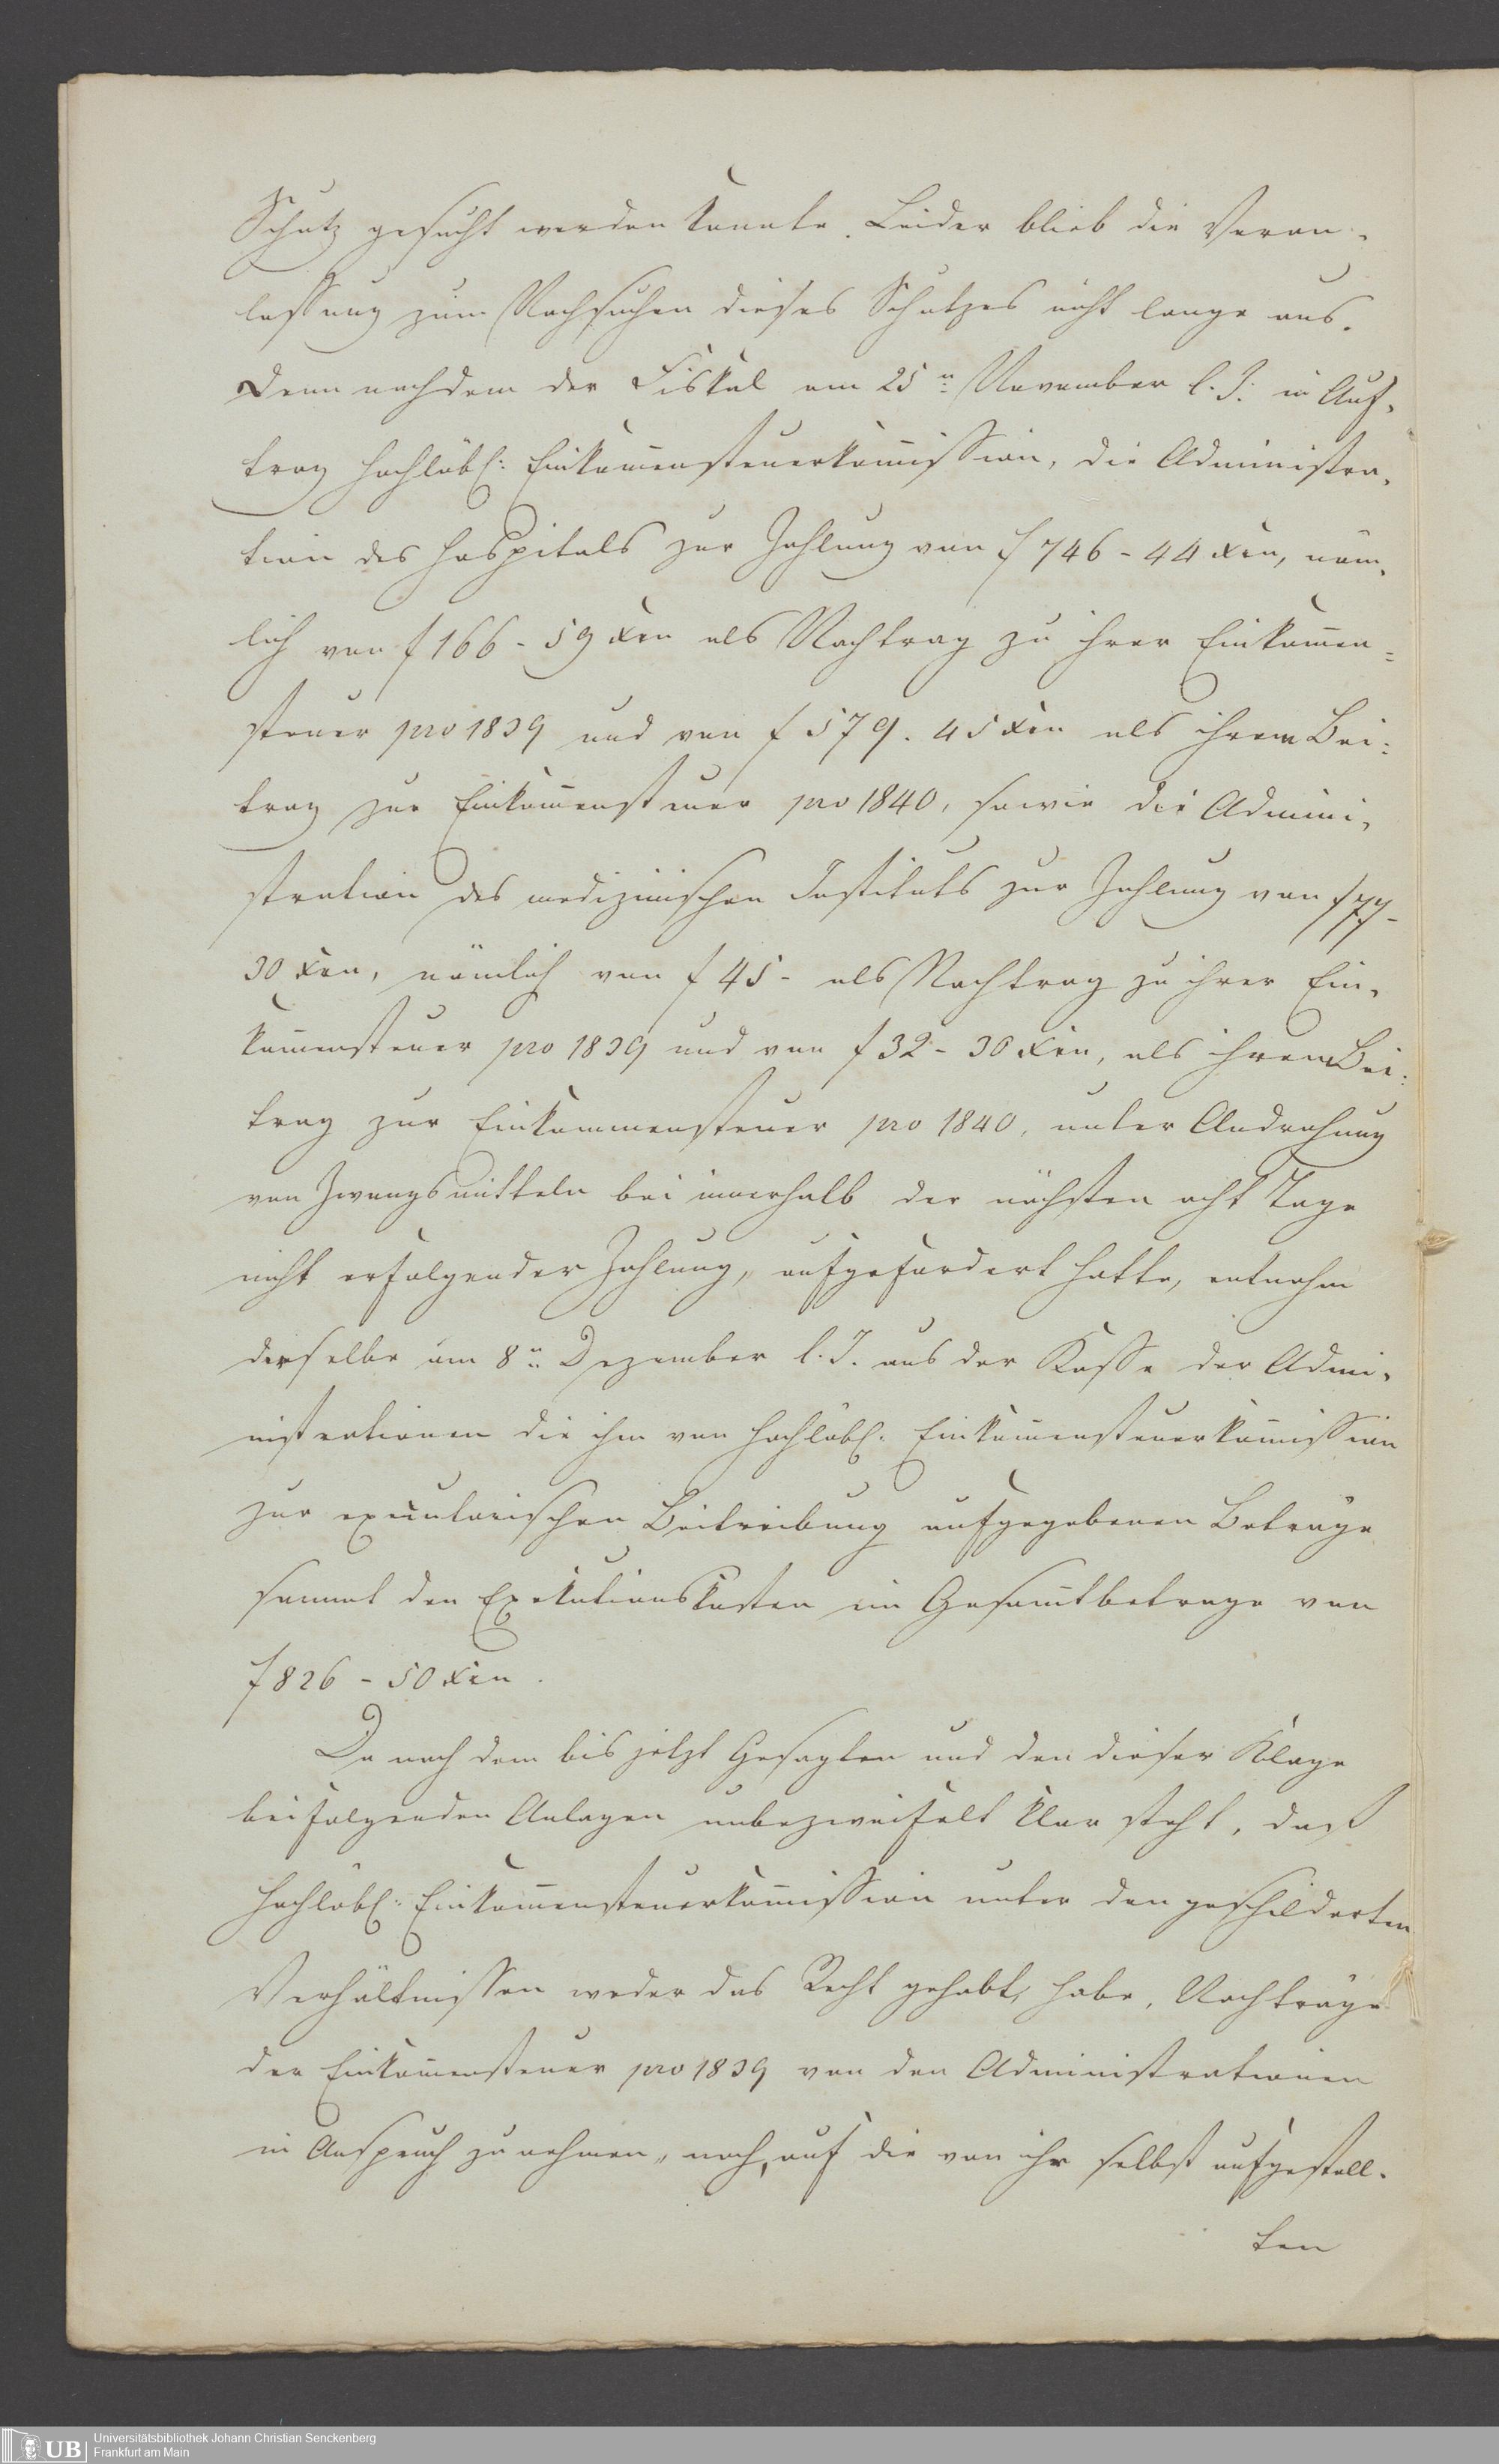 Schutz gesucht werden konnte. Leider blieb die Veran-
lassung zum Nachsuchen dieses Schutzes nicht lange aus.
Denn nachdem der Fiskal am 25n November l. J. in Auf-
trag hochlöbl: Einkom̅ensteuerkom̅ission, die Administra-
tion des Hospitals zur Zahlung von f 746 - 44 xrn, näm-
lich von f 166 - 59 xrn als Nachtrag zu ihrer Einkom̅en=
steuer pro 1839 und von f 579. 45 xrn als ihrem Bei-
trag zur Einkom̅ensteuer pro 1840, sowie die Admini-
stration des medizinischen Instituts zur Zahlung von f 77-
30 xrn, nämlich von f 45 - als Nachtrag zu ihrer Ein-
kom̅ensteuer pro 1839 und von f 32 - 30 xrn, als ihrem Bei-
trag zur Einkommensteuer pro 1840, unter Androhung
von Zwangsmitteln bei innerhalb der nächsten acht Tage
nicht erfolgender Zahlung, aufgefordert hatte, entnahm
derselbe am 8n Dezember l. J. aus der Kasse der Admi-
nistrationen die ihm von hochlöbl: Einkom̅ensteuerkom̅ission
zur executorischen Beitreibung aufgegebenen Beträge
sammt den Exekutionskosten im Gesam̅tbetrage von
f 826 - 50 xrn.
Da nach dem bis jetzt Gesagten und den dieser Klage
beifolgenden Anlagen unbezweifelt klar steht, daß
hochlöbl: Einkom̅ensteuerkom̅ission unter den geschilderten
Verhältnissen weder das Recht gehabt habe, Nachträge
der Einkom̅ensteuer pro 1839 von den Administrationen
in Anspruch zu nehmen, noch, auf die von ihr selbst aufgestell-
ten
UB
Universitätsbibliothek Johann Christian Senckenberg
Frankfurt am Main